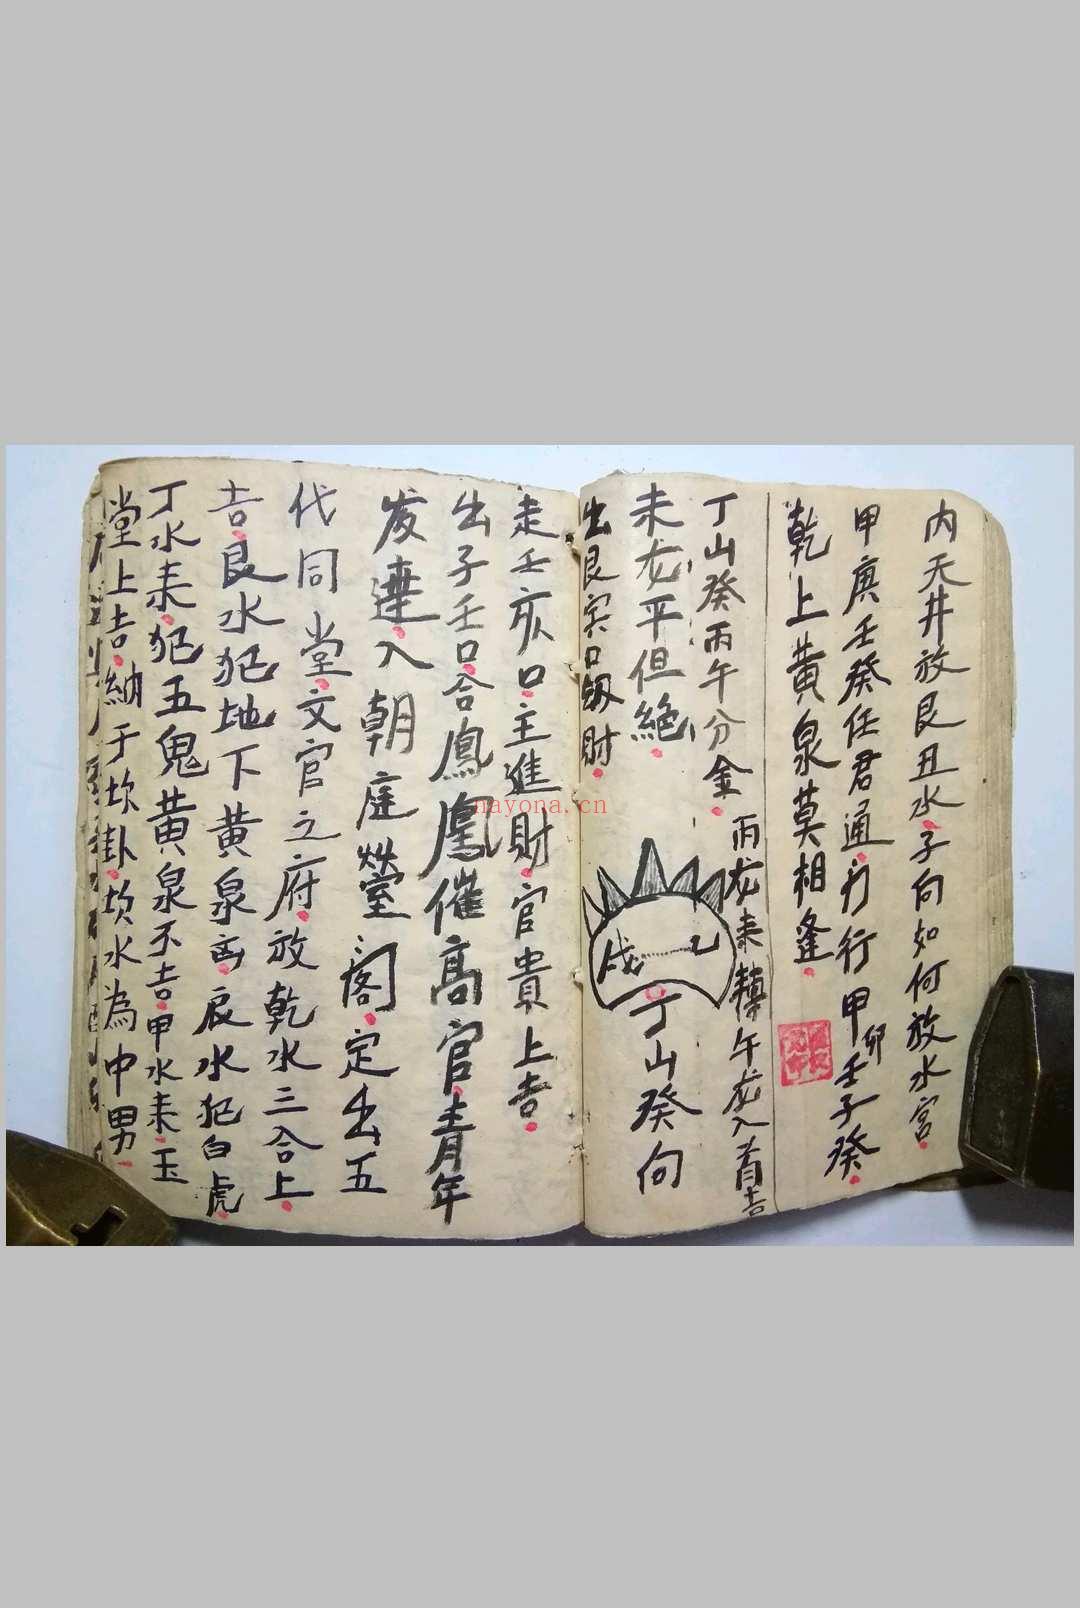 内天井放艮丑水子向如何放水宫
甲庚壬癸任君通方行甲卯壬子癸
乾上黄泉莫相逢
丙龙来轉午龙入首吉
丁山癸丙午分金
未龙平但絶
丁山癸向
出艮寅口刼財
走壬亥口主進財官貴上吉
出子壬口合鳯凰催高官青年
发達入朝庭
閣定出五
代同堂文官之府放乾水三合上
吉艮水犯地下黄泉凶辰水犯白虎
丁水来犯五鬼黄泉不吉甲水来玉
堂上吉納于坎卦坎水為中男
nayona.cn